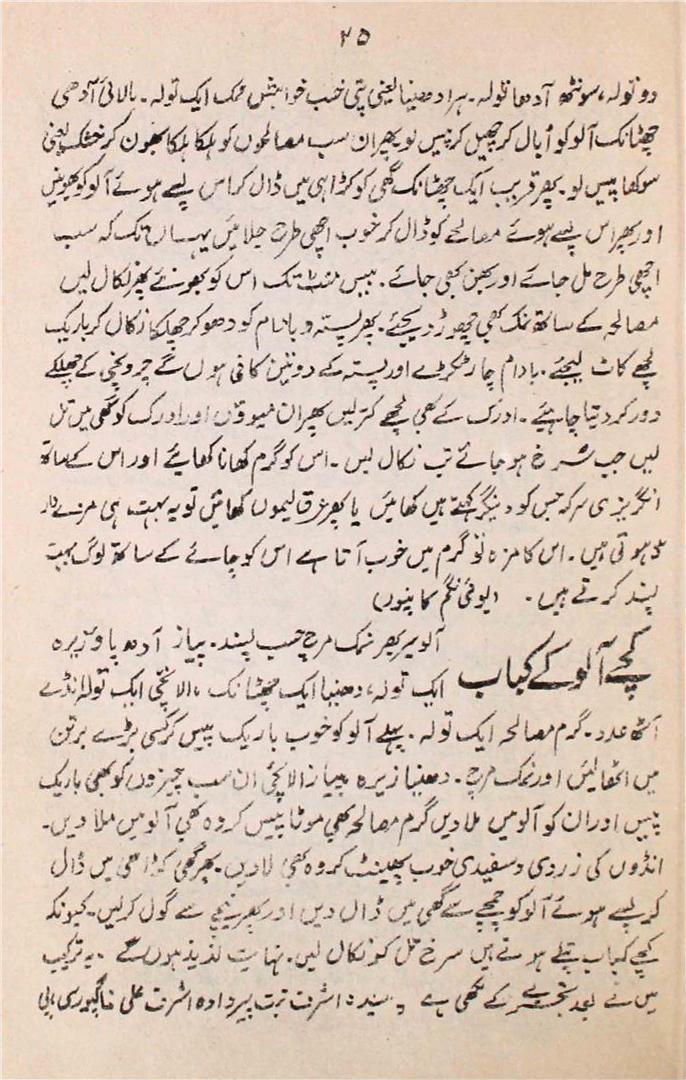 ۲۵
دو تولہ، سونٹھ آدھا تولہ۔ ہرا دھنیا یعنی پتی حسب خواہش نمک ایک تولہ۔ بالائی آدھی
چھٹانک آلو کو اُبال کر چھیل کر پیس لو پھر ان سب مصالحوں کو ہلکا ہلکا بھون کر خشک یعنی
سوکھا پیس لو۔ پھر قریب ایک چھٹانک گھی کو کڑاہی میں ڈال کر اس پسے ہوئے آلو کو بھونیں
اور پھر اس پسے ہوئے مصالحے کو ڈال کر خوب اچھی طرح چلائیں یہاں تک کہ سب
اچھی طرح مل جائے اور بھن بھی جائے۔ بیس منٹ تک اس کو بھونئے پھر نکال لیں
مصالحہ کے ساتھ نمک بھی چھوڑ دیجئے۔ پھر پستہ و بادام کو دھو کر چھلکا نکال کر باریک
لچھے کاٹ لیجئے۔ بادام چار ٹکڑے اور پستہ کے دو تین کافی ہوں گے چرونجی کے چھلکے
دور کر دینا چاہیئے۔ ادرک کے بھی لچھے کتر لیں پھر ان میوؤں اور ادرک کو گھی میں تل
لیں جب سُرخ ہو جائے تب نکال لیں۔ اس کو گرم کھانا کھائیے اور اس کے ساتھ
انگریزی سرکہ جس کو دینگر کہتے ہیں کھائیں یا پھر عرق لیموں کھائیں تو یہ بہت ہی مزے دار
ہوتی ہیں۔ اس کا مزہ تو گرم میں خوب آتا ہے اس کو چائے کے ساتھ لوگ بہت
پسند کرتے ہیں۔
کچے آلو کے کباب
آلو سیر بھر نمک مرچ حسب پسند۔ پیاز آدھ پاؤ زیرہ
ایک تولہ، دھنیا ایک چھٹانک، الائچی ایک تولہ انڈے
آٹھ عدد۔ گرم مصالحہ ایک تولہ۔ پہلے آلو کو خوب باریک پیس کر کسی بڑے برتن
میں اٹھا لیں اور نمک مرچ۔ دھنیا زیرہ پیاز الائچی ان سب چیزوں کو بھی باریک
پیس اور ان کو آلو میں ملا دیں گرم مصالحہ بھی موٹا پیس کر وہ بھی آلو میں ملا دیں۔
انڈوں کی زردی و سفیدی خوب پھینٹ کر وہ بھی ملا دیں۔ پھر گھی کڑاھی میں ڈال
کر پسے ہوئے آلو کو چمچے سے گھی میں ڈال دیں اور پھر چمچے سے گول کر لیں۔ کیونکہ
کچے کباب پتلے ہوتے ہیں سرخ تل کو نکال لیں۔ نہایت لذیذ ہوں گے۔ یہ ترکیب
میں نے بعد تجربے کے لکھی ہے۔ سیدہ اشرف